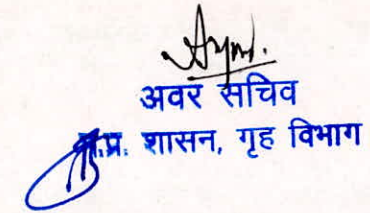 अवर सचिव
म.प्र. शासन, गृह विभाग